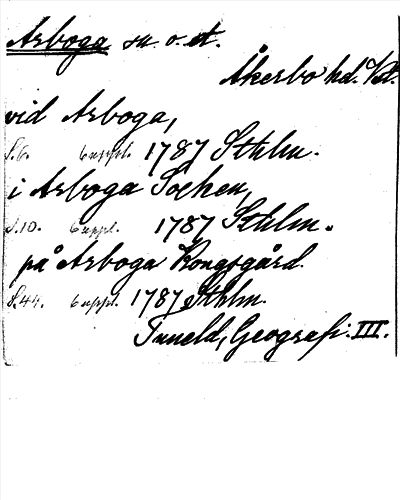 Arboga sn. o. st.
Åkerbo hd. Vstl.
vid Arboga,
S.6. 6 uppl. 1787 Sthlm.
i Arboga Sochen,
S.10. 6 uppl. 1787 Sthlm.
på Arboga Kongsgård.
S.44. 6 uppl. 1787 Sthlm.
Tuneld, Geografi. III.